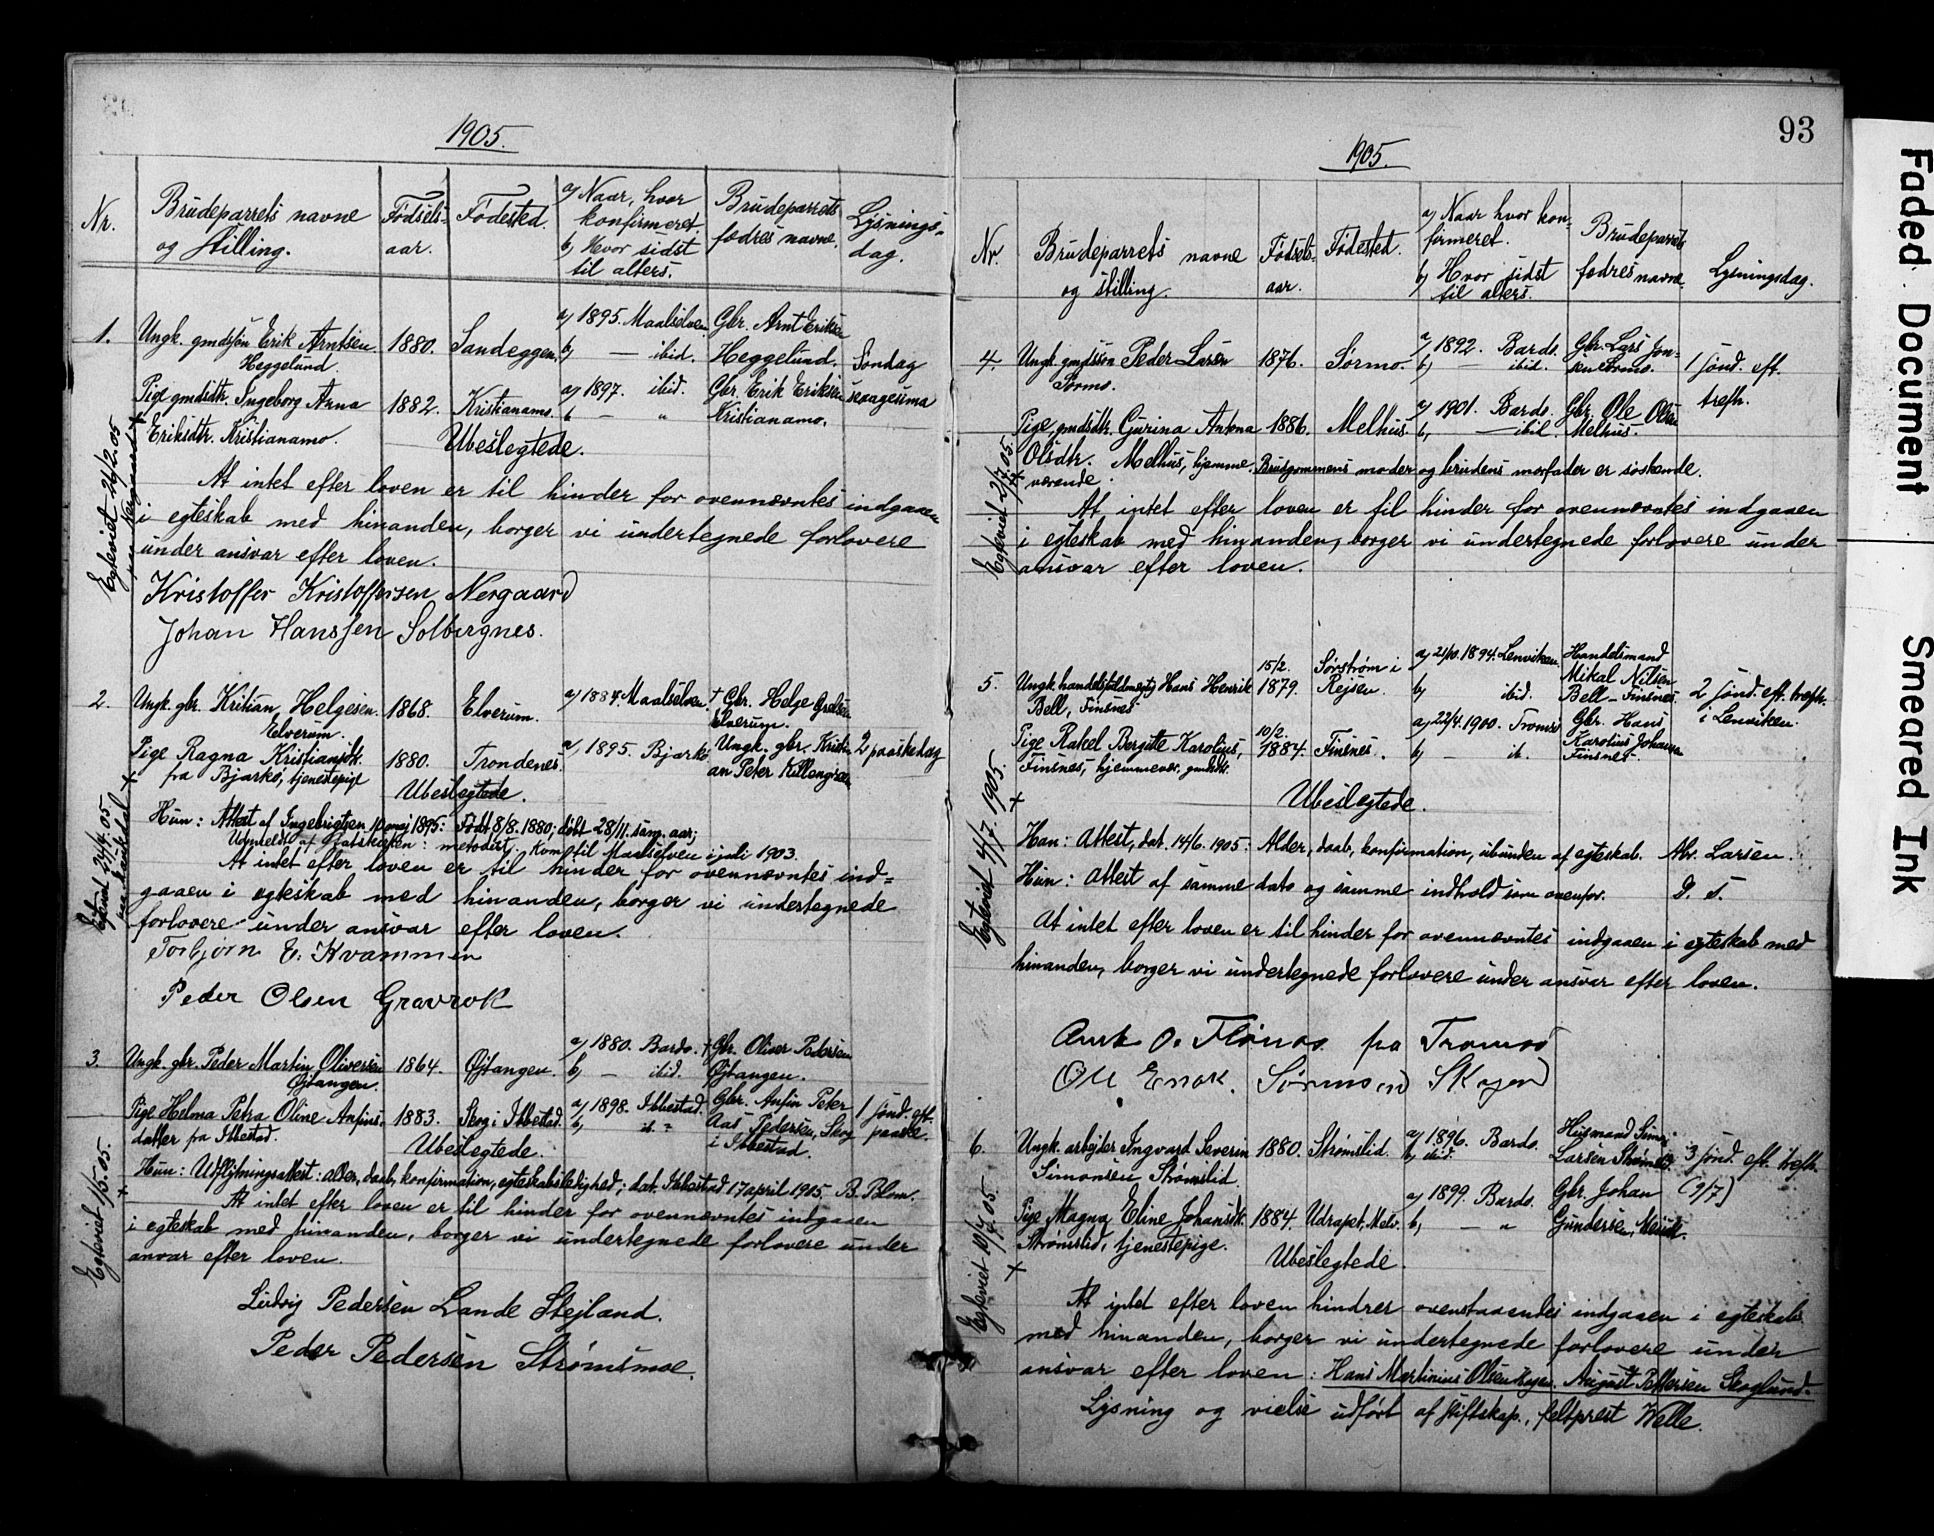 1905.
Nr.
Brudeparrets navne
og stilling.
Fødsels-
aar.
Fødested.
a) Naar, hvor
konfirmeret.
b) Hvor sidst
til alters.
Brudeparrets
fædres navne.
Lysnings-
dag.
1.
Ungk. gmdssøn Erik Arntsen
Heggelund.
1880.
Sandeggen.
a) 1895. Maalselven.
b) — ibid.
Gbr. Arnt Eriksen
Heggelund.
Søndag
sexagesima
Pige gmdsdtr. Ingeborg Anna
Eriksdtr. Kristianamo.
1882.
Kristianamo.
a) 1897. ibid.
b — "
Gbr. Erik Eriksen
Kristianamo.
Ubeslegtede.
Egteviet 26/2.05
At intet efter loven er til hinder for ovennævntes indgaaen
i egteskab med hinanden, borger vi undertegnede forlovere
under ansvar efter loven.
Kristoffer Kristoffersen Nergaard
Johan Hanssen Solbergnes.
2.
Ungk. gbr. Kritian Helgesen
Elverum.
1868.
Elverum.
a) 1884. Maalselven
† Gbr. Helge
Elverum.
Pige Ragna Kristiansdtr.
fra Bjarkø, tjenestepige
1880.
Trondenes.
a) 1895. Bjarkø
Ungk. gbr. Kristi-
an Peter
2 paaskedag
Ubeslegtede.
Egteviet 24/4.05
Hun: Attest af Ingebrigtsen 10 maj 1895: Født 8/8. 1880; døbt 28/11. sam. aar;
Udmeldt af statskirken: metodist. Kom til Maalselven i juli 1903.
At intet efter loven er til hinder for ovennævntes ind-
gaaen i egteskab med hinanden, borger vi undertegnede
forlovere under ansvar efter loven.
Torbjørn E. Kvammen
Peder Olsen Gravrok
3.
Ungk. gbr. Peder Martin Oliversen
Øjtangen.
1864.
Øjtangen.
a) 1880. Bardo.
b) — ibid.
† Gbr. Oliver Pedersen
Øjtangen.
Pige Helma Petra Oline Anfins-
datter fra Ibbestad.
1883.
Skog i Ibbestad.
a) 1898. Ibbestad.
b) ib. "
Gbr. Anfin Peter
Aas Pedersen, Skog
i Ibbestad.
1 sønd. eft.
paaske.
Ubeslegtede.
Egteviet 1/5.05.
Hun: Udflytningsattest: alder, daab, konfirmation, egteskabsledighed; dat. Ibbestad 17 april 1905. B. Blom.
At intet efter loven er til hinder for ovennævntes indgaaen
i egteskab med hinanden, borger vi undertegnede forlovere under
ansvar efter loven.
Ludvig Pedersen Lande Stejland.
Peder Pedersen Strømsmoe.
93
1905.
Nr.
Brudeparrets navne
og stilling.
Fødsels-
aar.
Fødested.
a) Naar hvor kon-
firmeret.
b) Hvor sidst
til alters.
Brudeparrets
fædres navne.
Lysningsdag.
4.
Ungk. gmdssøn Peder Larsen
Sørmo.
1876.
Sørmo.
a) 1892. Bardo.
b) — ibid.
Gbr. Lars Jon-
sen Sørmo.
1 sønd. eft.
trefh.
Pige, gmdsdtr. Gurina Antona
Olsdtr. Melhus, hjemme-
værende.
1886.
Melhus.
a) 1901. Bardo.
b) — ibid.
Gbr. Ole Olsen
Melhus.
Brudgommens moder og brudens morfader er søskende.
Egteviet 2/7.05.
At intet efter loven er til hinder for ovennævntes indgaaen
i egteskab med hinanden, borger vi undertegnede forlovere under
ansvar efter loven.
5.
Ungk. handelsfuldmegtig Hans Henrik
Bell, Finsnes
15/2.
1879.
Sørstrøm i
Rejsen.
a) 21/10. 1894. Lenviken.
b) ibid.
Handelsmand
Mikal Nilsen
Bell - Finsnes
2 sønd. eft. trefh.
i Lenviken.
Pige Rakel Bergitte Karolius,
Finsnes, hjemmevær. gmdsdtr.
10/2.
1884.
Finsnes.
a) 22/4. 1900. Tromsø
b) — ib.
Gbr. Hans
Karolius Johansen
Finsnes.
Ubeslegtede.
Egteviet 9/7 1905.
Han: Attest, dat. 14/6. 1905: Alder, daab, konfirmation, ubunden af egteskab. Abr. Larsen.
Hun: Attest af samme dato og samme indhold som ovenfor. D. S.
At intet efter loven er til hinder for ovennævntes indgaaen i egteskab med
hinanden, borger vi undertegnede forlovere under ansvar efter loven.
fra Tromsø
Ole Enok. Skogen
6.
Ungk. arbejder Ingvard Severin
Simonsen Strømslid.
1880.
Strømslid.
a) 1896. Bardo.
b) ibid.
Husmand Simon
Larsen Strømslid.
3 sønd. eft. trefh.
(9/7)
Pige Magna Eline Johansdtr.
Strømslid, tjenestepige.
1884.
Udrapet, Melv.
a) 1899. Bardo.
b) — "
Gbr. Johan
Gundersen
Ubeslegtede.
Egteviet
At intet efter loven hindrer ovenstaaendes indgaaen i egteskab
med hinanden, borger vi undertegnede forlovere under
ansvar efter loven: Hans Martinius Olsen Mogen. August Pettersen Skoglund.
Lysning og vielse udført af stiftskap., feltprest Welle.
Faded Document
Smeared Ink